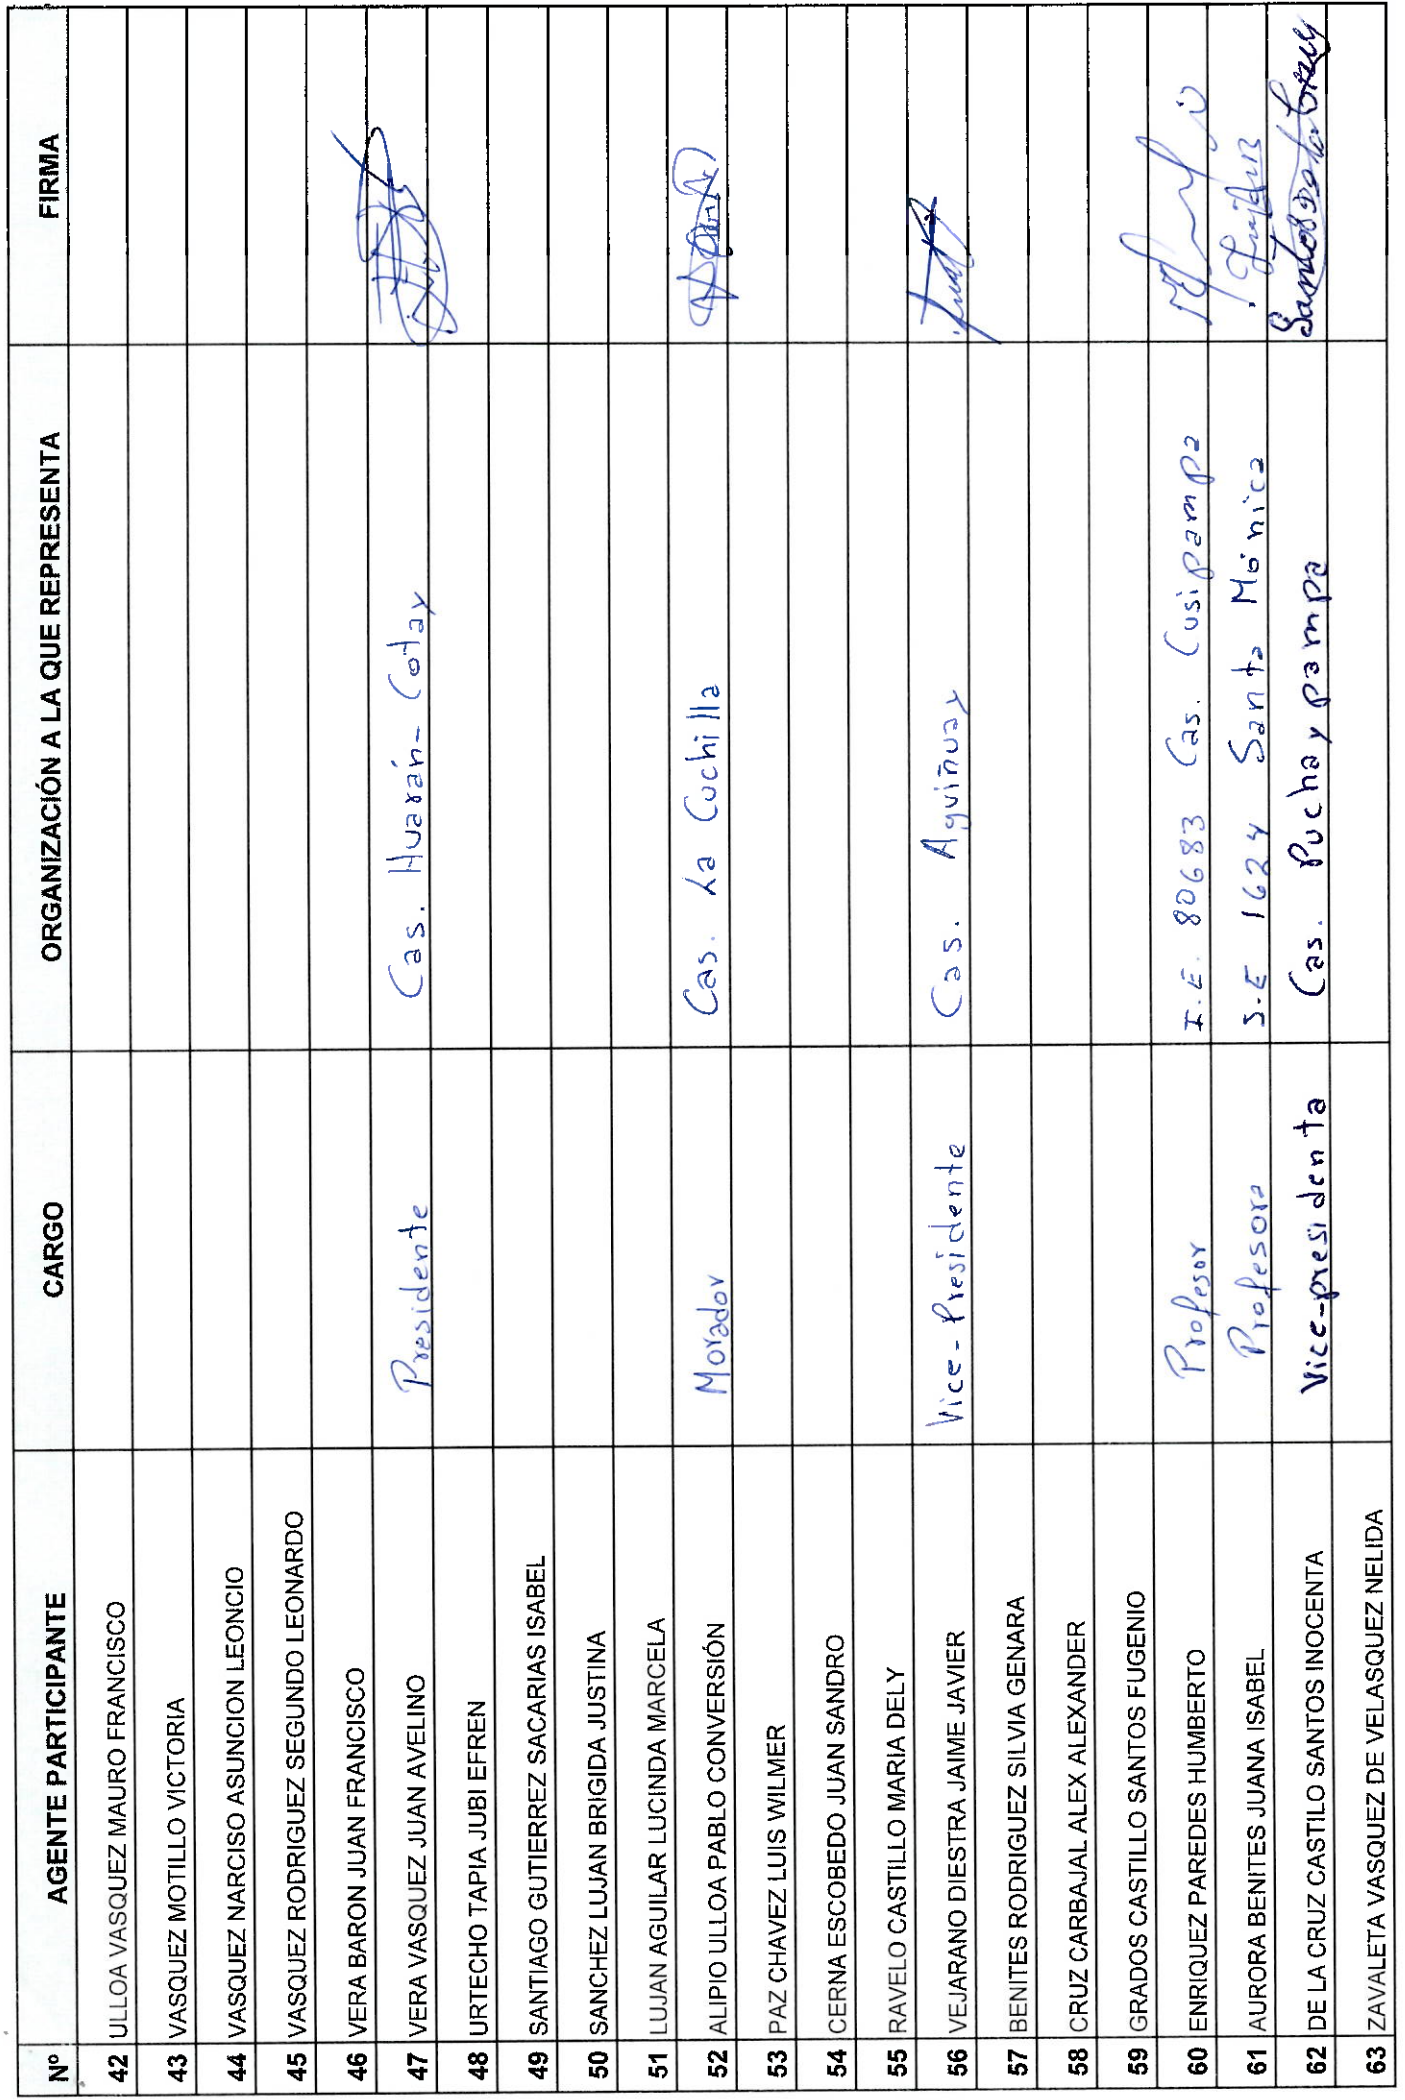 Nº AGENTE PARTICIPANTE CARGO ORGANIZACIÓN A LA QUE REPRESENTA FIRMA
42 ULLOA VASQUEZ MAURO FRANCISCO
43 VASQUEZ MOTILLO VICTORIA
44 VASQUEZ NARCISO ASUNCION LEONCIO
45 VASQUEZ RODRIGUEZ SEGUNDO LEONARDO
46 VERA BARON JUAN FRANCISCO
47 VERA VASQUEZ JUAN AVELINO Presidente Cas. Huarán-Cotay
48 URTECHO TAPIA JUBI EFREN
49 SANTIAGO GUTIERREZ SACARIAS ISABEL
50 SANCHEZ LUJAN BRIGIDA JUSTINA
51 LUJAN AGUILAR LUCINDA MARCELA
52 ALIPIO ULLOA PABLO CONVERSIÓN Morador Cas. La Cuchilla
53 PAZ CHAVEZ LUIS WILMER
54 CERNA ESCOBEDO JUAN SANDRO
55 RAVELO CASTILLO MARIA DELY
56 VEJARANO DIESTRA JAIME JAVIER Vice-Presidente Cas. Aguiñuay
57 BENITES RODRIGUEZ SILVIA GENARA
58 CRUZ CARBAJAL ALEX ALEXANDER
59 GRADOS CASTILLO SANTOS FUGENIO
60 ENRIQUEZ PAREDES HUMBERTO Profesor I.E. 80683 Cas. Cusipampa
61 AURORA BENITES JUANA ISABEL Profesora I.E 1624 Santa Mónica
62 DE LA CRUZ CASTILO SANTOS INOCENTA Vice-presidenta Cas. Puchaypampa
63 ZAVALETA VASQUEZ DE VELASQUEZ NELIDA